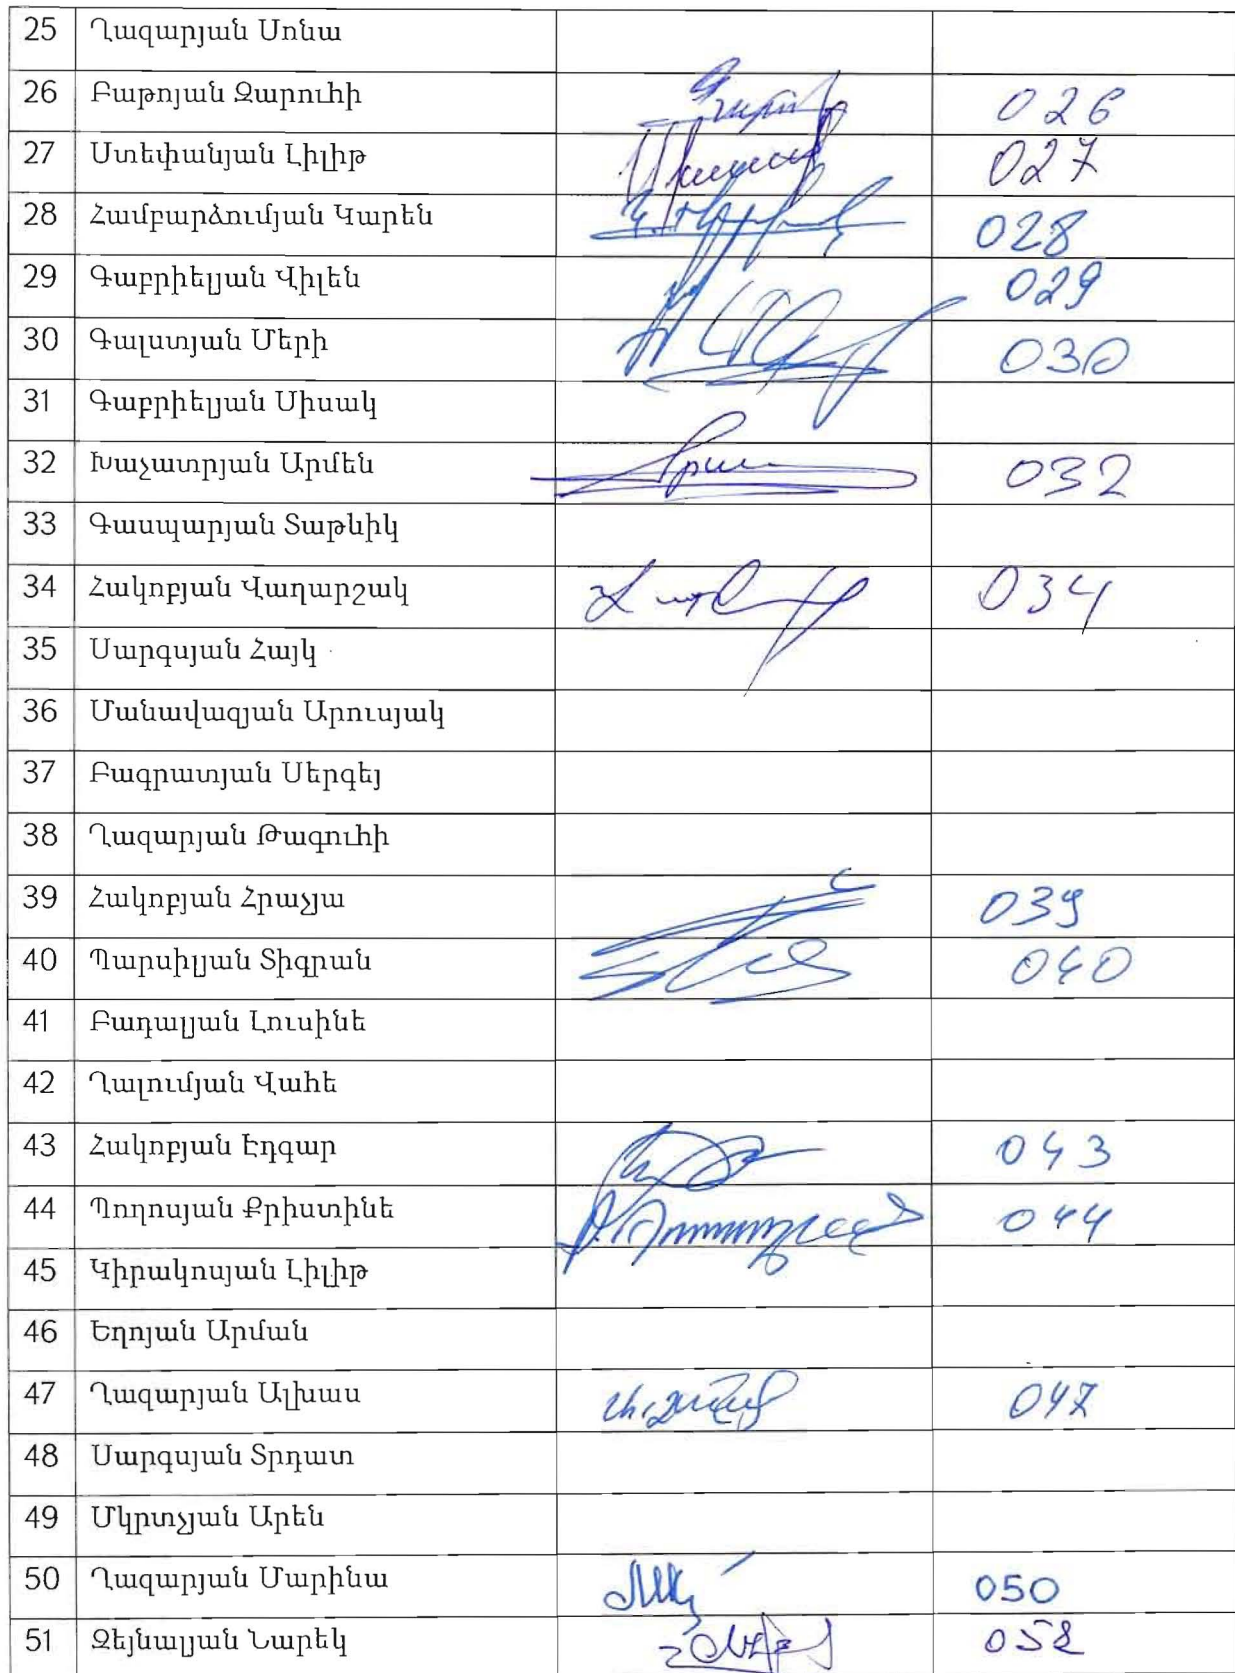 25 Ղազարյան Սոնա
26 Բաթոյան Զարուհի 026
27 Ստեփանյան Լիլիթ 027
28 Համբարձումյան Կարեն 028
29 Գաբրիելյան Վիլեն 029
30 Գալստյան Մերի 030
31 Գաբրիելյան Սիսակ
32 Խաչատրյան Արմեն 032
33 Գասպարյան Տաթևիկ
34 Հակոբյան Վաղարշակ 034
35 Սարգսյան Հայկ
36 Մանավազյան Արուսյակ
37 Բագրատյան Սերգեյ
38 Ղազարյան Թագուհի
39 Հակոբյան Հրաչյա 039
40 Պարսիլյան Տիգրան 040
41 Բադալյան Լուսինե
42 Ղալումյան Վահե
43 Հակոբյան Էդգար 043
44 Պողոսյան Քրիստինե 044
45 Կիրակոսյան Լիլիթ
46 Եղոյան Արման
47 Ղազարյան Ալխաս 047
48 Սարգսյան Տրդատ
49 Մկրտչյան Արեն
50 Ղազարյան Մարինա 050
51 Զեյնալյան Նարեկ